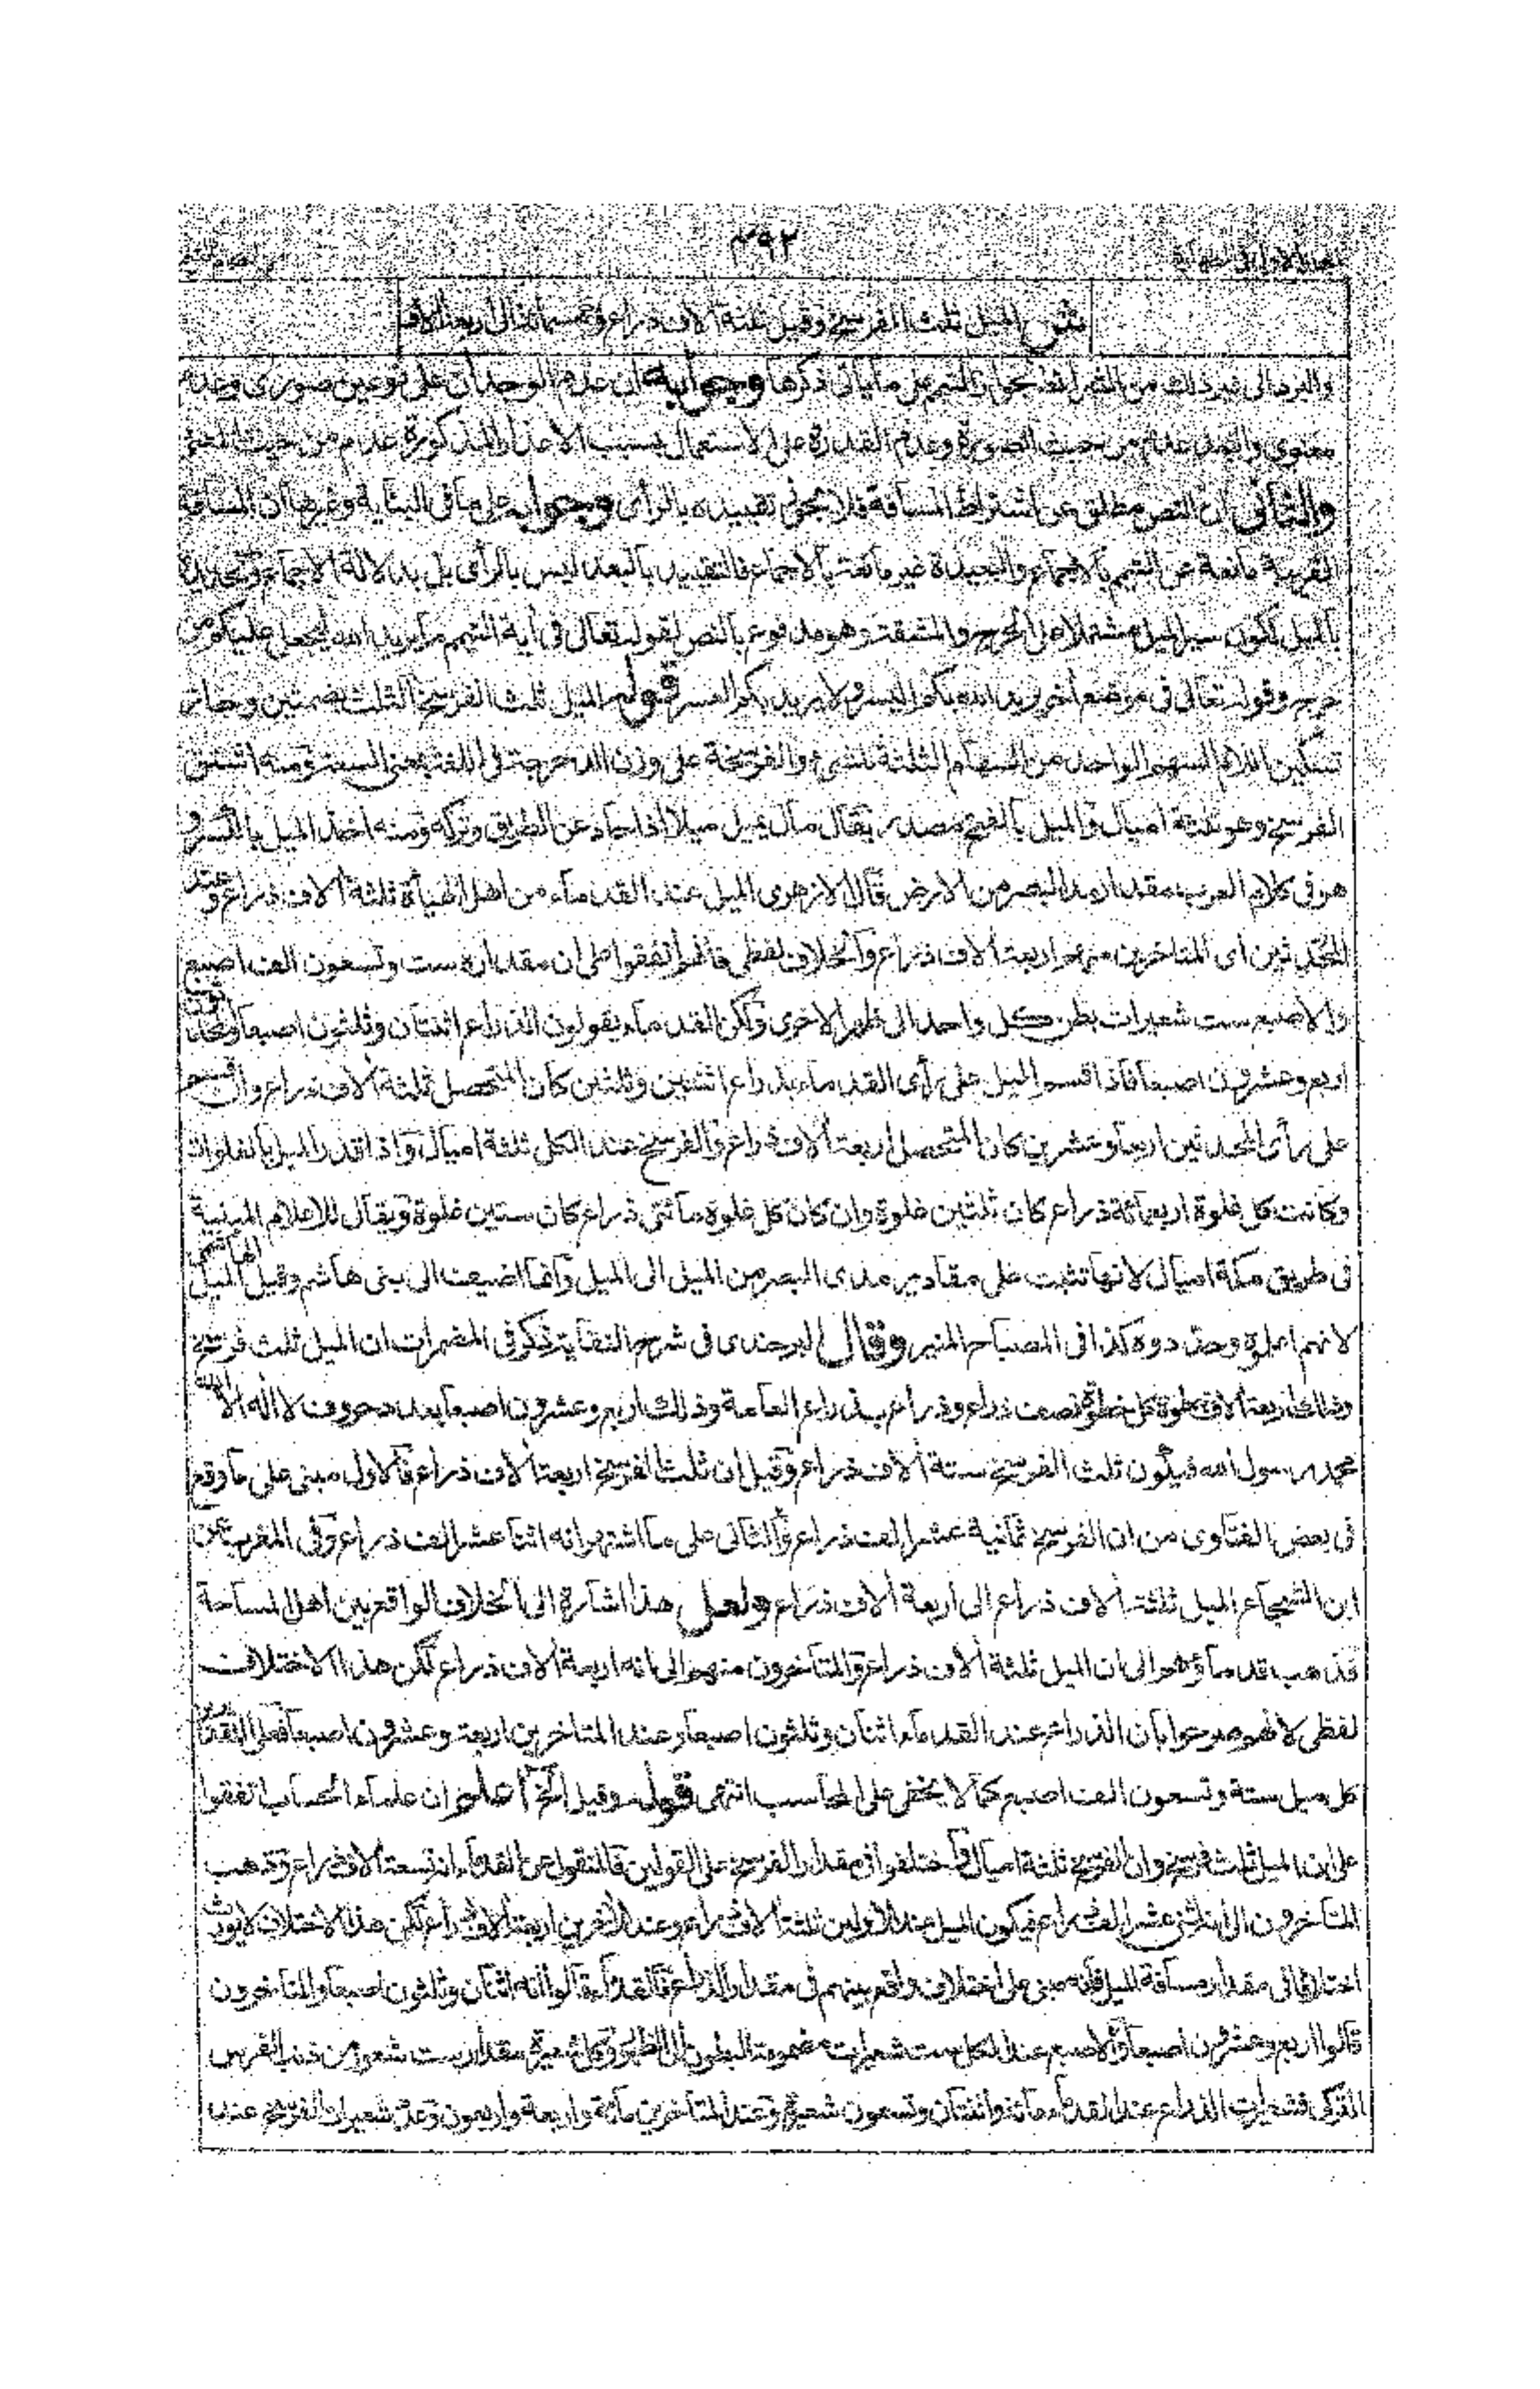 ٣٩٢
ش الميل ثلث الفرسخ وقيل ثلثة آلاف ذراع وخمسمائة الى اربعة آلاف
والبرد الى غير ذلك من الشرائط لجواز التيمم على ما يأتى ذكرها وجوابه ان عدم الوجدان على نوعين صورى وعدم
معنوى والبعد عدم من حيث الصورة وعدم القدرة على الاستعمال بسبب الاعذار المذكورة عدم من حيث المعنى
والثانى ان النص مطلق عن اشتراط المسافة فلا يجوز تقييده بالرأى وجوابه على ما فى البناية وغيرها ان المسافة
القريبة مانعة عن التيمم بالاجماع والبعيدة غير مانعة بالاجماع فالتقييد بالبعد ليس بالرأى بل بدلالة الاجماع وتحديده
بالميل لكون سير الميل مشتملا على الحرج والمشقة وهو مدفوع بالنص لقوله تعالى فى آية التيمم ما يريد الله ليجعل عليكم من
حرج وقوله تعالى فى موضع آخر يريد الله بكم اليسر ولا يريد بكم العسر قوله الميل ثلث الفرسخ الثلث بضمتين وجاز
تسكين اللام السهم الواحد من السهام الثلثة للشئ والفرسخة على وزن الدحرجة فى اللغة بمعنى السعة ومنه اشتق
الفرسخ وهو ثلثة اميال والميل بالفتح مصدر يقال مال يميل ميلا اذا حاد عن الطريق وتركه ومنه اخذ الميل بالكسر و
هو فى كلام العرب مقدار مد البصر من الارض قال الازهرى الميل عند القدماء من اهل الهيأة ثلثة آلاف ذراع وعند
المحدثين أى المتاخرين منهم اربعة آلاف ذراع والخلاف لفظى فانهم اتفقوا على ان مقداره ست وتسعون الف اصبع
والاصبع ست شعيرات بطن كل واحد الى ظهر الاخرى ولكن القدماء يقولون الذراع اثنتان وثلثون اصبعا والمحدثون
اربع وعشرون اصبعا فاذا قسم الميل على رأى القدماء بذراع اثنتين وثلثين كان المتحصل ثلثة آلاف ذراع وان قسم
على رأى المحدثين اربعا وعشرين كان المتحصل اربعة آلاف ذراع والفرسخ عند الكل ثلثة اميال واذا قدر الميل بالغلوات
وكانت كل غلوة اربعمائة ذراع كان ثلثين غلوة وان كان كل غلوة مائتى ذراع كان ستين غلوة ويقال للاعلام المبنية
فى طريق مكة اميال لانها تثبت على مقادير مدى البصر من الميل الى الميل وانما اضيفت الى بنى هاشم وقيل الميل الهاشمى
لانهم اعلوه وحددوه كذا فى المصباح المنير وقال البرجندى فى شرح النقاية ذكر فى المضمرات ان الميل ثلث فرسخ
وذلك اربعة آلاف خطوة كل خطوة نصف ذراع وذراع بذراع العامة وذلك اربع وعشرون اصبعا بعدد حروف لا اله الا الله
محمد رسول الله فيكون ثلث الفرسخ ستة آلاف ذراع وقيل ان ثلث الفرسخ اربعة آلاف ذراع فالاول مبنى على ما وقع
فى بعض الفتاوى من ان الفرسخ ثمانية عشر الف ذراع والثانى على ما اشتهر انه اثنا عشر الف ذراع وفى المغرب عن
ابن الشجاع الميل ثلثة آلاف ذراع الى اربعة آلاف ذراع ولعل هذا اشارة الى الخلاف الواقع بين اهل المساحة
فذهب قدماؤهم الى ان الميل ثلثة آلاف ذراع والمتأخرون منهم الى انه اربعة آلاف ذراع لكن هذا الاختلاف
لفظى لانهم صرحوا بان الذراع عند القدماء اثنان وثلثون اصبعا وعند المتاخرين اربعة وعشرون اصبعا فعلى التقديرين
كل ميل ستة وتسعون الف اصبع كما لا يخفى على المحاسب انتهى قوله وقيل الخ اعلم ان علماء الحساب اتفقوا
على ان الميل ثلث فرسخ وان الفرسخ ثلثة اميال واختلفوا فى مقدار الفرسخ على القولين فالمنقول عن القدماء انه تسعة آلاف ذراع وذهب
المتأخرون الى انه اثنى عشر الف ذراع فيكون الميل عند الاولين ثلثة آلاف ذراع وعند الآخرين اربعة آلاف ذراع لكن هذا الاختلاف لا يورث
اختلافا فى مقدار مسافة الميل فانه مبنى على اختلاف واقع بينهم فى مقدار الذراع فالقدماء قالوا انه اثنان وثلثون اصبعا والمتأخرون
قالوا اربع وعشرون اصبعا والاصبع عند الكل ست شعيرات مضمومة البطون الى الظهور وكل شعيرة مقدار ست شعور من ذنب الفرس
التركى فشعيرات الذراع عند القدماء مائة واثنتان وتسعون شعيرة وعند المتأخرين مائة واربعة واربعون وعدد شعيرات الفرسخ عند